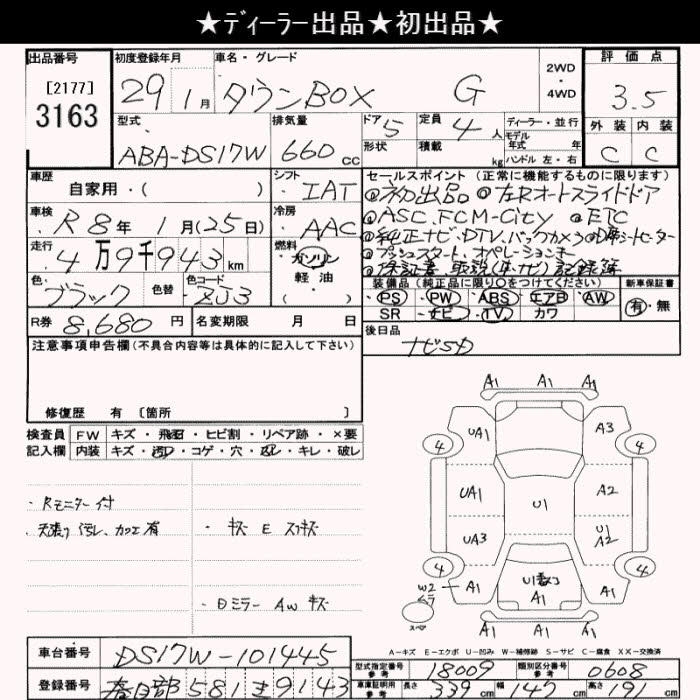 ★ﾃﾞｨｰﾗｰ出品★初出品★
出品番号
[2177]
3163
初度登録年月
29 1月
車名・グレード
タウンBOX G
2WD
・
4WD
評価点
3.5
外装 内装
C C
型式
ABA-DS17W
排気量
660cc
ドア 5
定員 4人
ディーラー・並行
モデル年式 年
形状
積載 kg
ハンドル 左・右
車歴
自家用・( )
シフト
IAT
セールスポイント(正常に機能するものに限ります)
◎初出品 ◎左Rオートスライドドア
◎ASC.FCM-City ◎ETC
◎純正ナビ.DTV.バックカメラ◎D席シートヒーター
◎プッシュスタート、オペレーションキー
◎保証書 取説(車・ナビ)記録簿
車検
R8年 1月(25日)
冷房
AAC
走行
4万9千943km
燃料
ガソリン
軽・油
色
ブラック
色替
色コード
X53
装備品(純正品に限り○をつけてください)
PS・PW・ABS・エアB・AW
SR・ナビ・TV・カワ
新車保証書
有・無
R券 8,680円
名変期限 月 日
後日品
ナビSD
注意事項申告欄(不具合内容等は具体的に記入して下さい)
修復歴 有〔箇所 〕
検査員記入欄
FW キズ・飛石・ヒビ割・リペア跡・×要
内装 キズ・汚れ・コゲ・穴・凹・キレ・破レ
・Rモニター付
・天張り汚レ、カケ有
・キズ E スリキズ
・Dミラー AW キズ
A1 A1 A1
4 UA1 A3 4
UA1 U1 A2
UA3 U1 A2
4 4
W2 ムラ A1 U1 A1 A1
スペア
A-キズ E-エクボ U-凹み W-補修跡 S-サビ C-腐食 XX-交換済
車台番号 DS17W-101445
登録番号 春日部 581 9143
型式指定番号 参考 18009
類別区分番号 参考 0608
車庫証明用 参考 長さ 339cm 幅 147cm 高さ 191cm